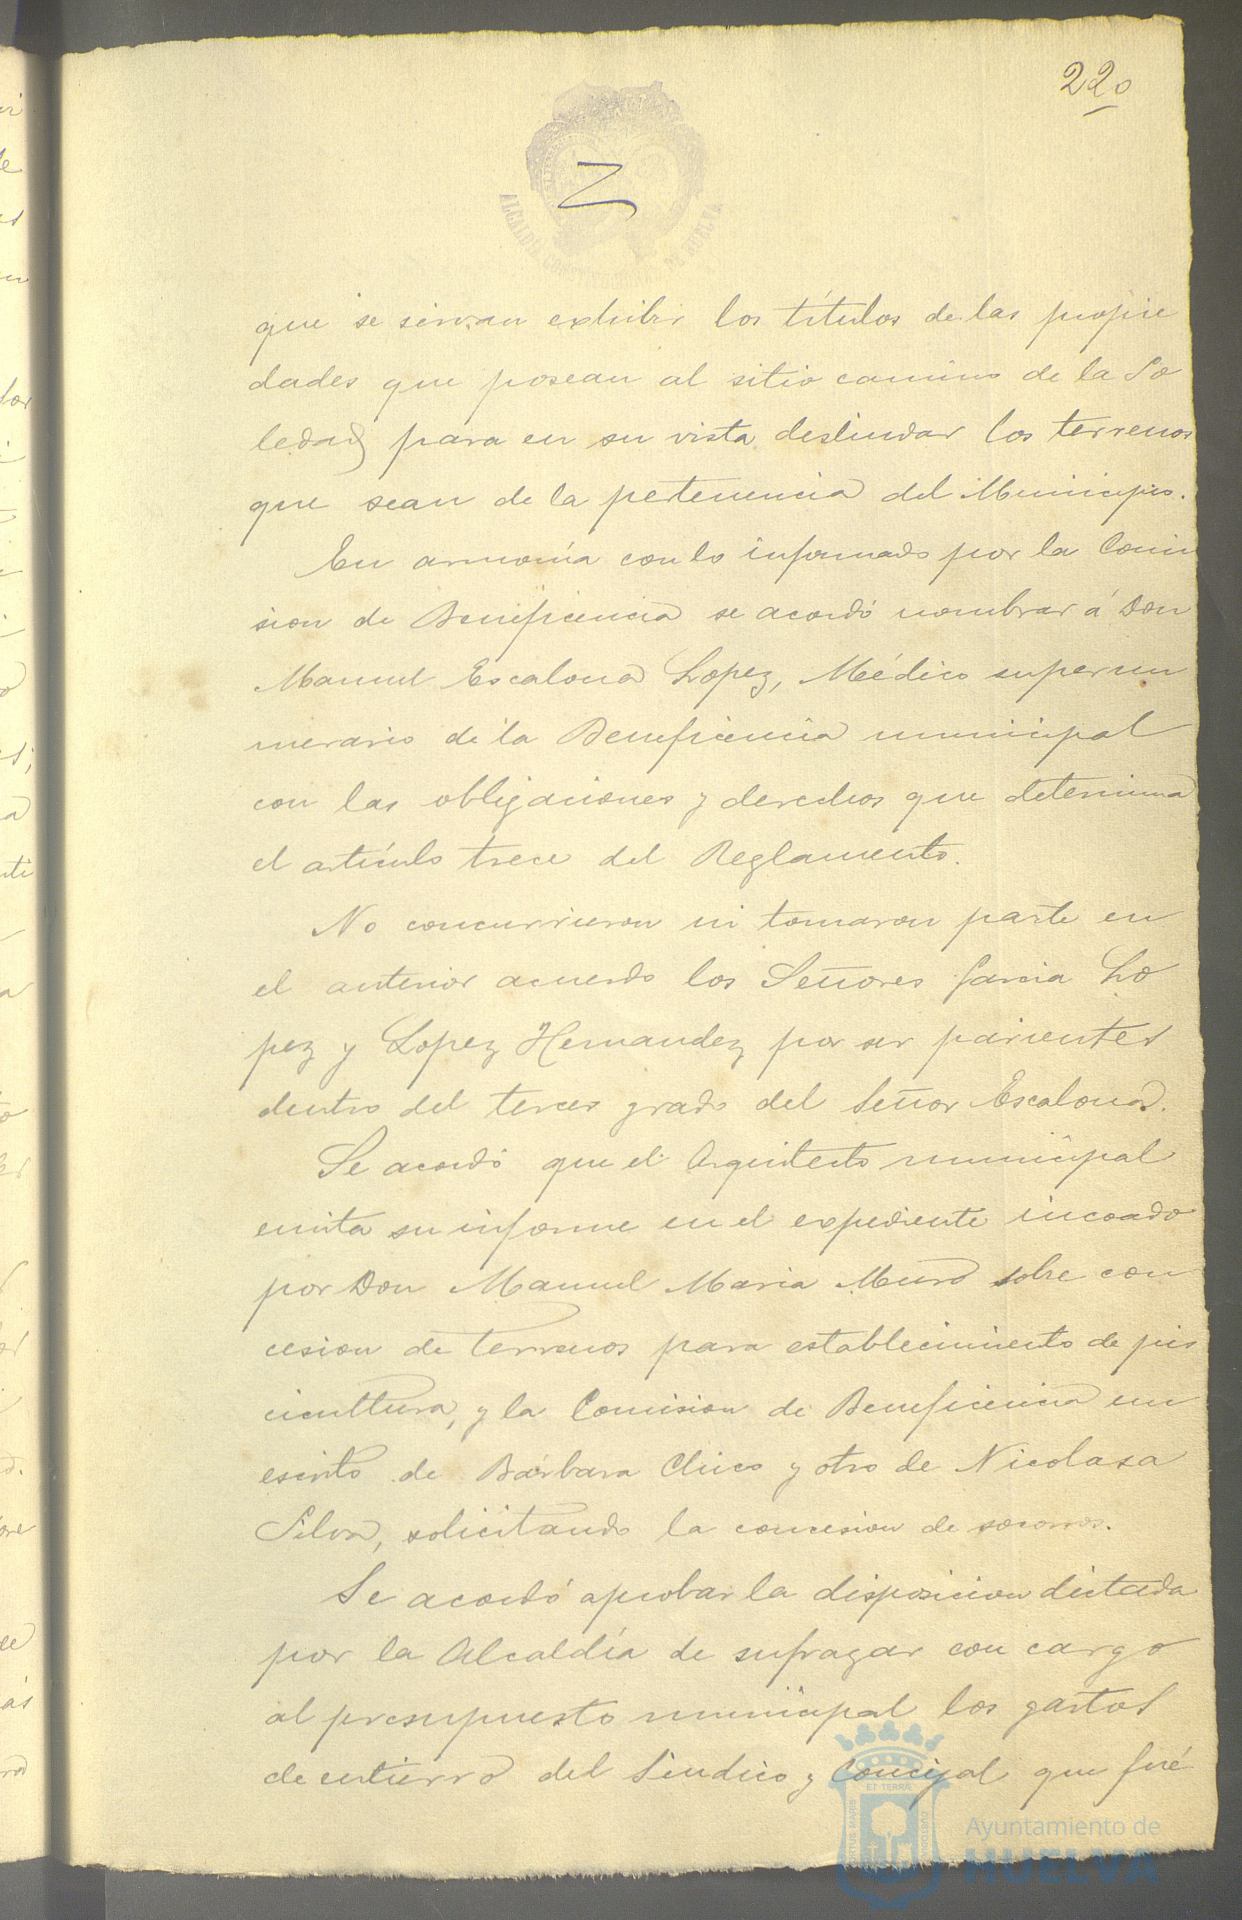 220
ALCALDIA CONSTITUCIONAL DE HUELVA
que se sirvan exhibir los títulos de las propie
dades que posean al sitio camino de la So
ledad para en su vista deslindar los terrenos
que sean de la pertenencia del Municipio.
En armonía con lo informado por la Comi
sion de Beneficencia se acordó nombrar á Don
Manuel Escalona Lopez, Médico supernu
merario de la Beneficencia municipal
con las obligaciones y derechos que determina
el artículo trece del Reglamento.
No concurrieron ni tomaron parte en
el anterior acuerdo los Señores Garcia Lo
pez y Lopez Hernandez por ser parientes
dentro del tercer grado del Señor Escalona.
Se acordó que el Arquitecto municipal
emita su informe en el expediente incoado
por Don Manuel Maria Muro sobre con
cesion de terrenos para establecimiento de pis
cicultura, y la Comision de Beneficencia en
escrito de Bárbara Chico y otro de Nicolasa
Silva, solicitando la concesion de socorros.
Se acordó aprobar la disposicion dictada
por la Alcaldía de sufragar con cargo
al presupuesto municipal los gastos
de entierro del Síndico y Concejal que fué
Ayuntamiento de
HUELVA